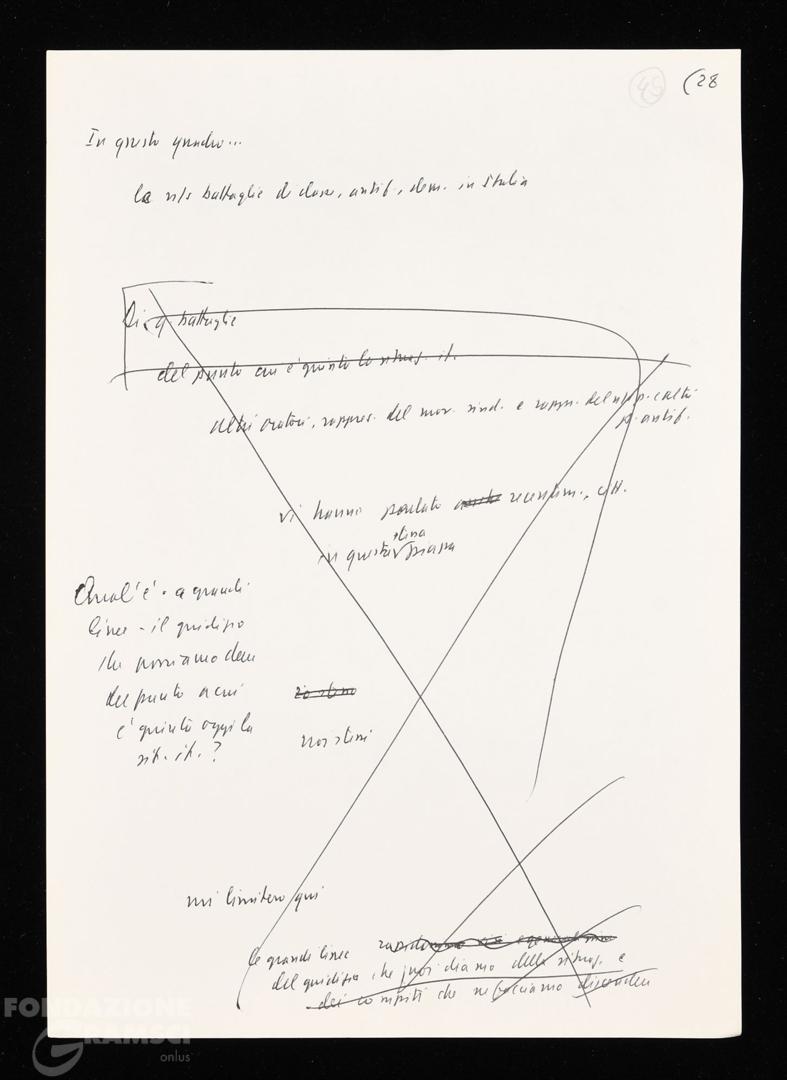 (28
In questo quadro...
la ns battaglie di classe, antif., dem. in Italia
Di q. battaglie
del punto cui è giunto la situaz. it.
altri oratori, rappres. del mov. sind. e rappr. del p.
p. antif.
vi hanno parlato anche recentem.,
stessa
in questa piazza
Qual'è - a grandi
linee - il giudizio
che possiamo dare
del punto a cui
è giunta oggi la
sit. it.?
io stesso
noi stessi
mi limiterò qui
le grandi linee
del giudizio che noi diamo della situaz. e
dei compiti che ne facciamo discendere
FONDAZIONE
GRAMSCI
onlus